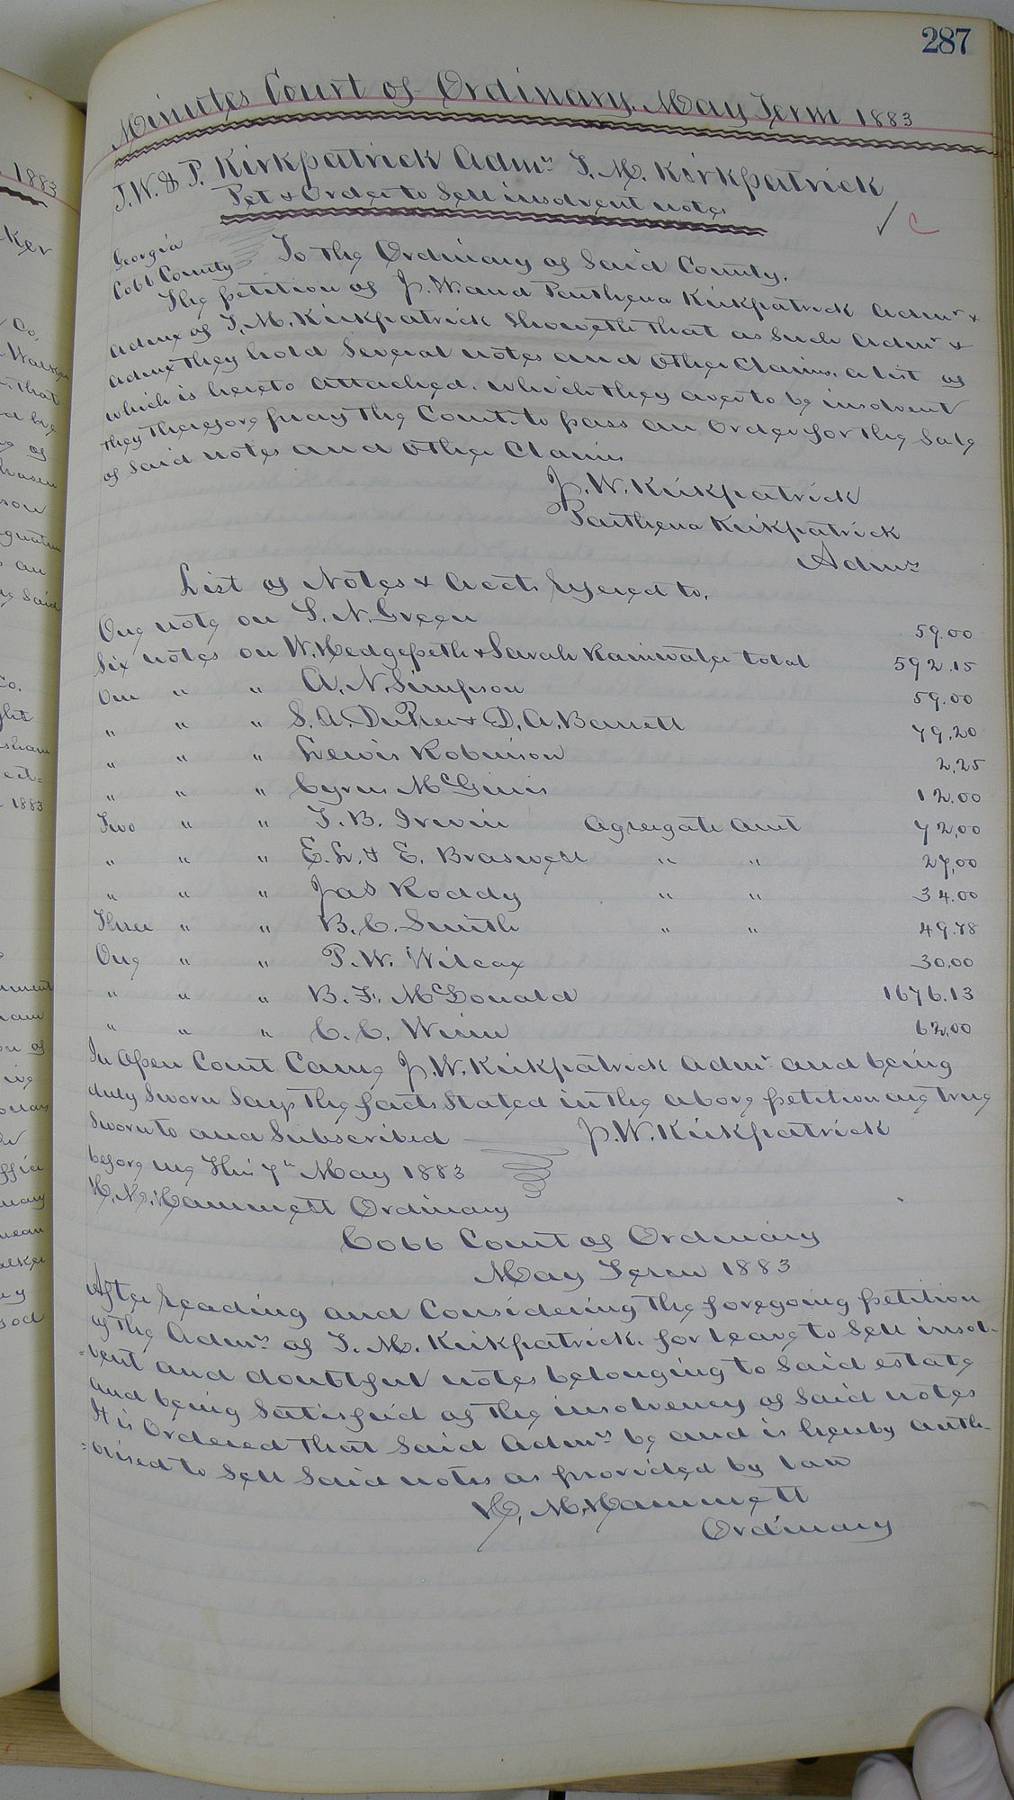 287
Minutes Court of Ordinary May Term 1883
J. W. & P. Kirkpatrick Admrs T. M. Kirkpatrick
Pet & Order to Sell insolvent notes
Georgia
Cobb County To the Ordinary of Said County.
The petition of J. W. and Parthena Kirkpatrick Admr &
Admx of T. M. Kirkpatrick Showeth that as Such Admr &
Admx they hold Several notes and other Claims, a list of
which is hereto attached. which they aver to be insolvent
they therefore pray the Court to pass an Order for the Sale
of Said notes and other Claims
J. W. Kirkpatrick
Parthena Kirkpatrick
Admrs
List of Notes & Accts refered to.
One note on S. N. Green 59.00
Six notes on W. Hedgepeth & Sarah Rainwater total 592.15
One " " A. N. Simpson 59.00
" " " S. A. DuPree & D. A. Barrett 79.20
" " " Lewis Robinson 2.25
" " " Cyrus McGinis 12.00
Two " " T. B. Irwin Agregate Amt 72.00
" " " E. L. & E. Braswell " " 27.00
" " " Jas Roddy " " 34.00
Three " " B. C. Smith " " 49.78
One " " P. W. Wilcox 30.00
" " " B. F. McDonald 1676.13
" " " C. C. Winn 62.00
In Open Court Came J. W. Kirkpatrick Admr and being
duly Sworn Says the facts Stated in the above petition are true
Sworn to and Subscribed J. W. Kirkpatrick
before me This 7th May 1883
H. M. Hammett Ordinary
Cobb Court of Ordinary
May Term 1883
After reading and Considering the foregoing petition
of the Admrs of T. M. Kirkpatrick. for leave to Sell insol-
-vent and doubtful notes belonging to Said estate
and being Satisfied of the insolvency of Said notes
It is Ordered that Said Admrs be and is hereby auth-
=orised to Sell Said notes as provided by law
H. M. Hammett
Ordinary